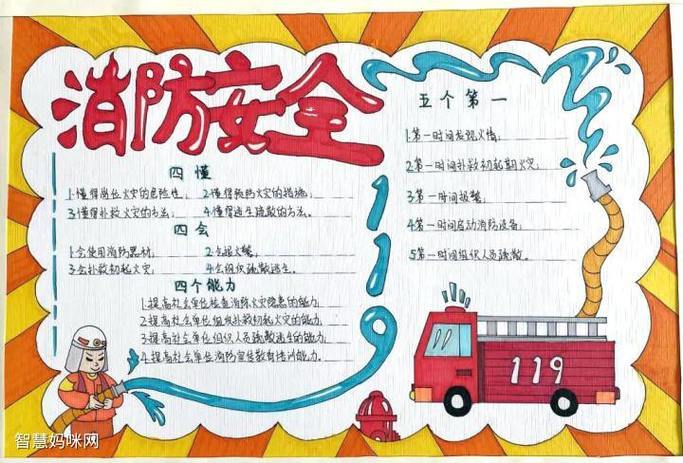 消防安全
四懂
1.懂得岗位火灾的危险性；2.懂得预防火灾的措施；
3.懂得扑救火灾的方法；4.懂得逃生疏散的方法。
四会
1.会使用消防器材；2.会报火警；
3.会扑救初起火灾；4.会组织疏散逃生。
四个能力
1.提高社会单位检查消除火灾隐患的能力
2.提高社会单位组织扑救初起火灾的能力
3.提高社会单位组织人员疏散逃生的能力
4.提高社会单位消防宣传教育培训能力。
119
五个第一
1.第一时间发现火情；
2.第一时间扑救初起期火灾；
3.第一时间报警；
4.第一时间启动消防设备；
5第一时间组织人员疏散。
119
智慧妈咪网